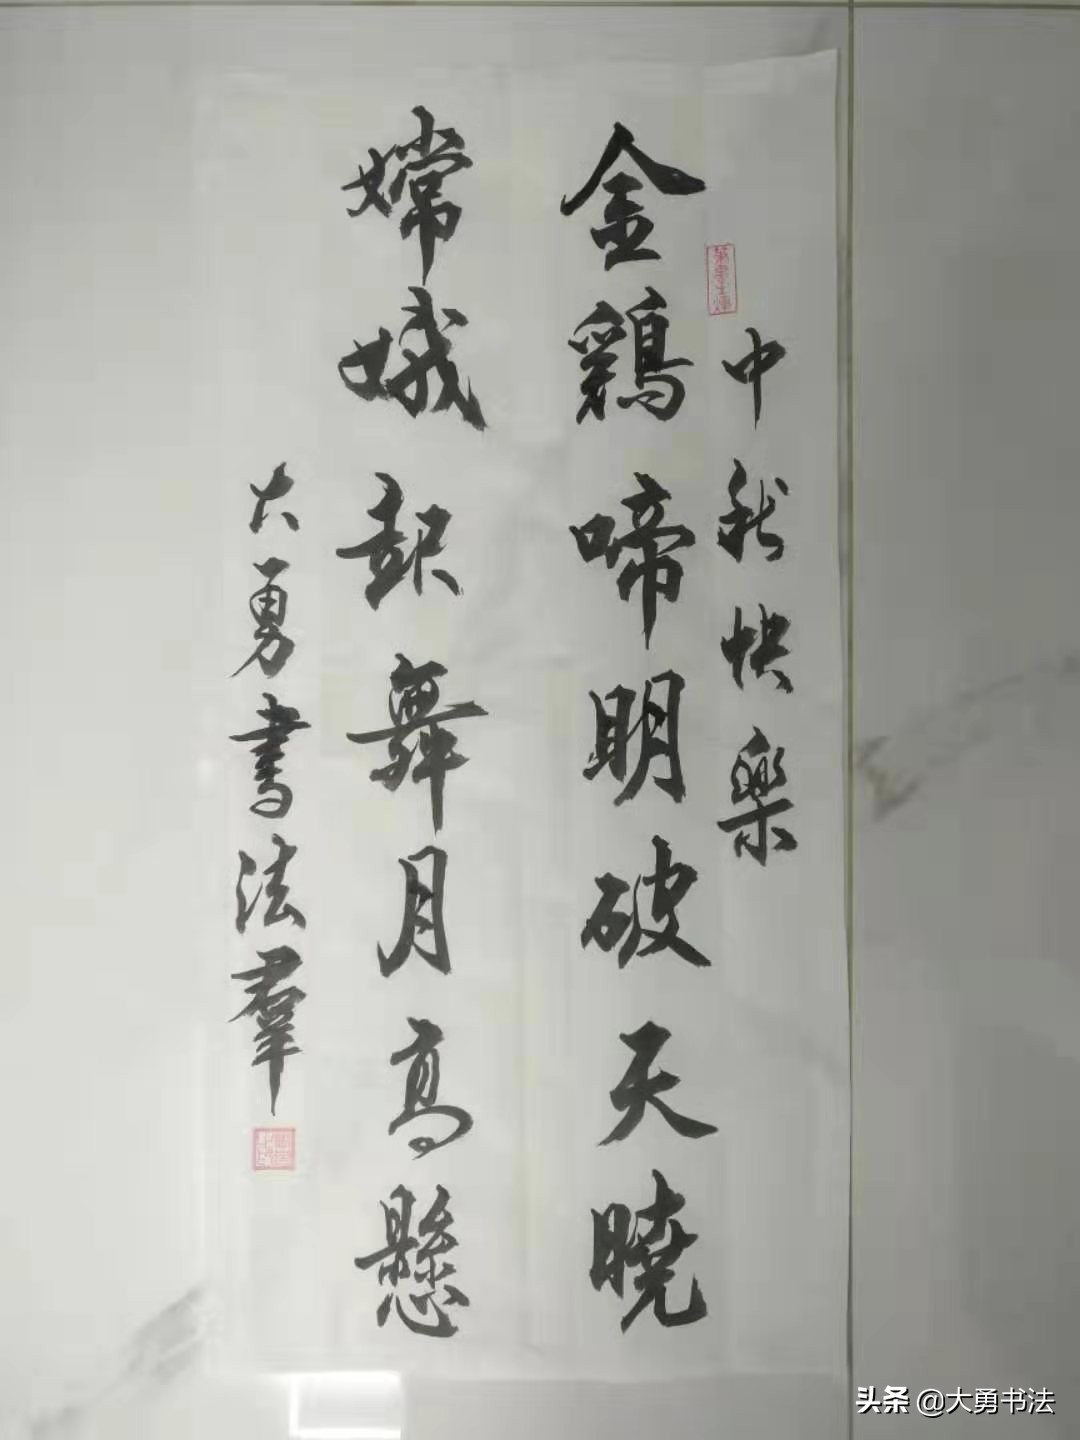 中秋快樂
金鷄啼明破天曉
嫦娥起舞月高懸
大勇書法羣
头条 @大勇书法